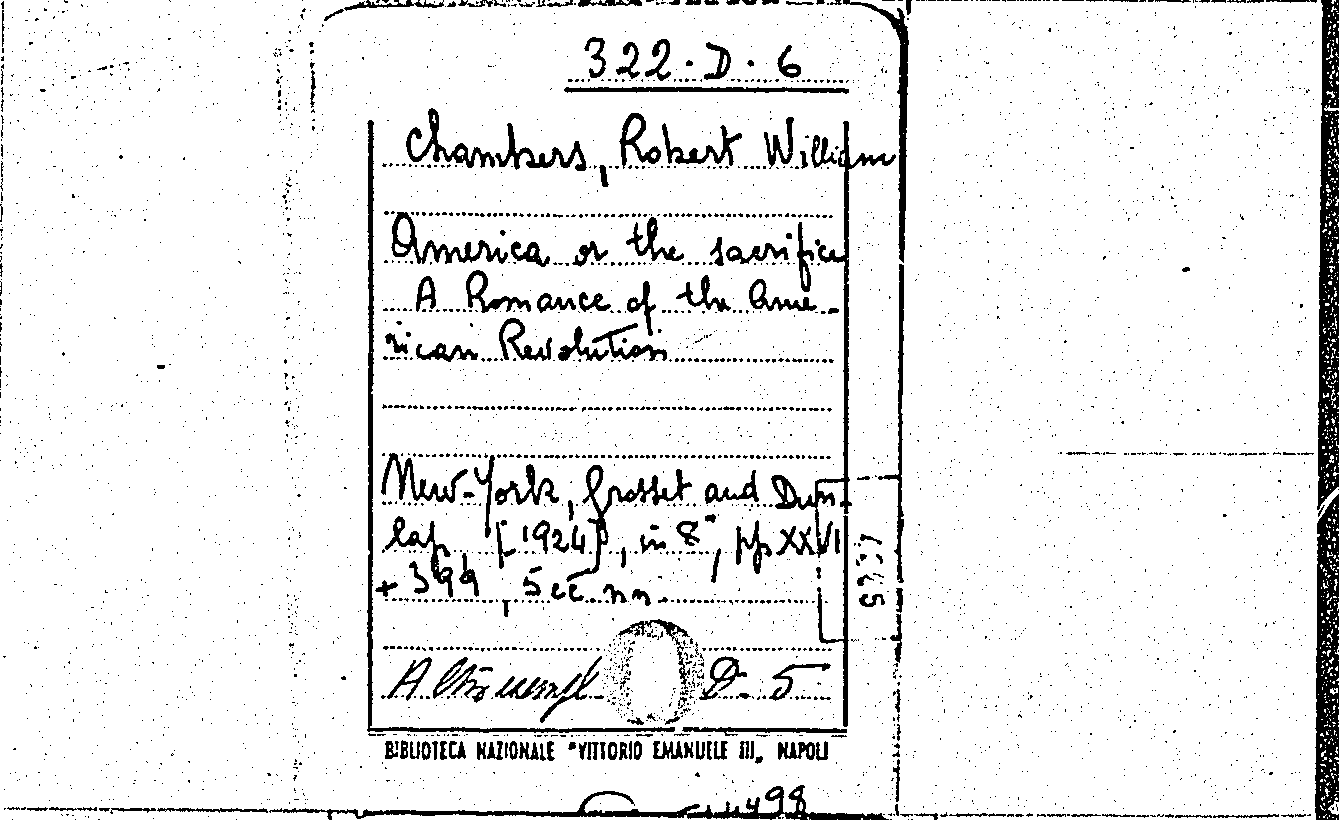 322.D.6
Chambers, Robert William
America or the sacrifice
A Romance of the Ame-
rican Revolution
New-York, Grosset and Dun-
lap, [1924], in 8°, pp XXVI
+ 399, 5 cc. nn.
D. 5
BIBLIOTECA NAZIONALE "VITTORIO EMANUELE III" NAPOLI